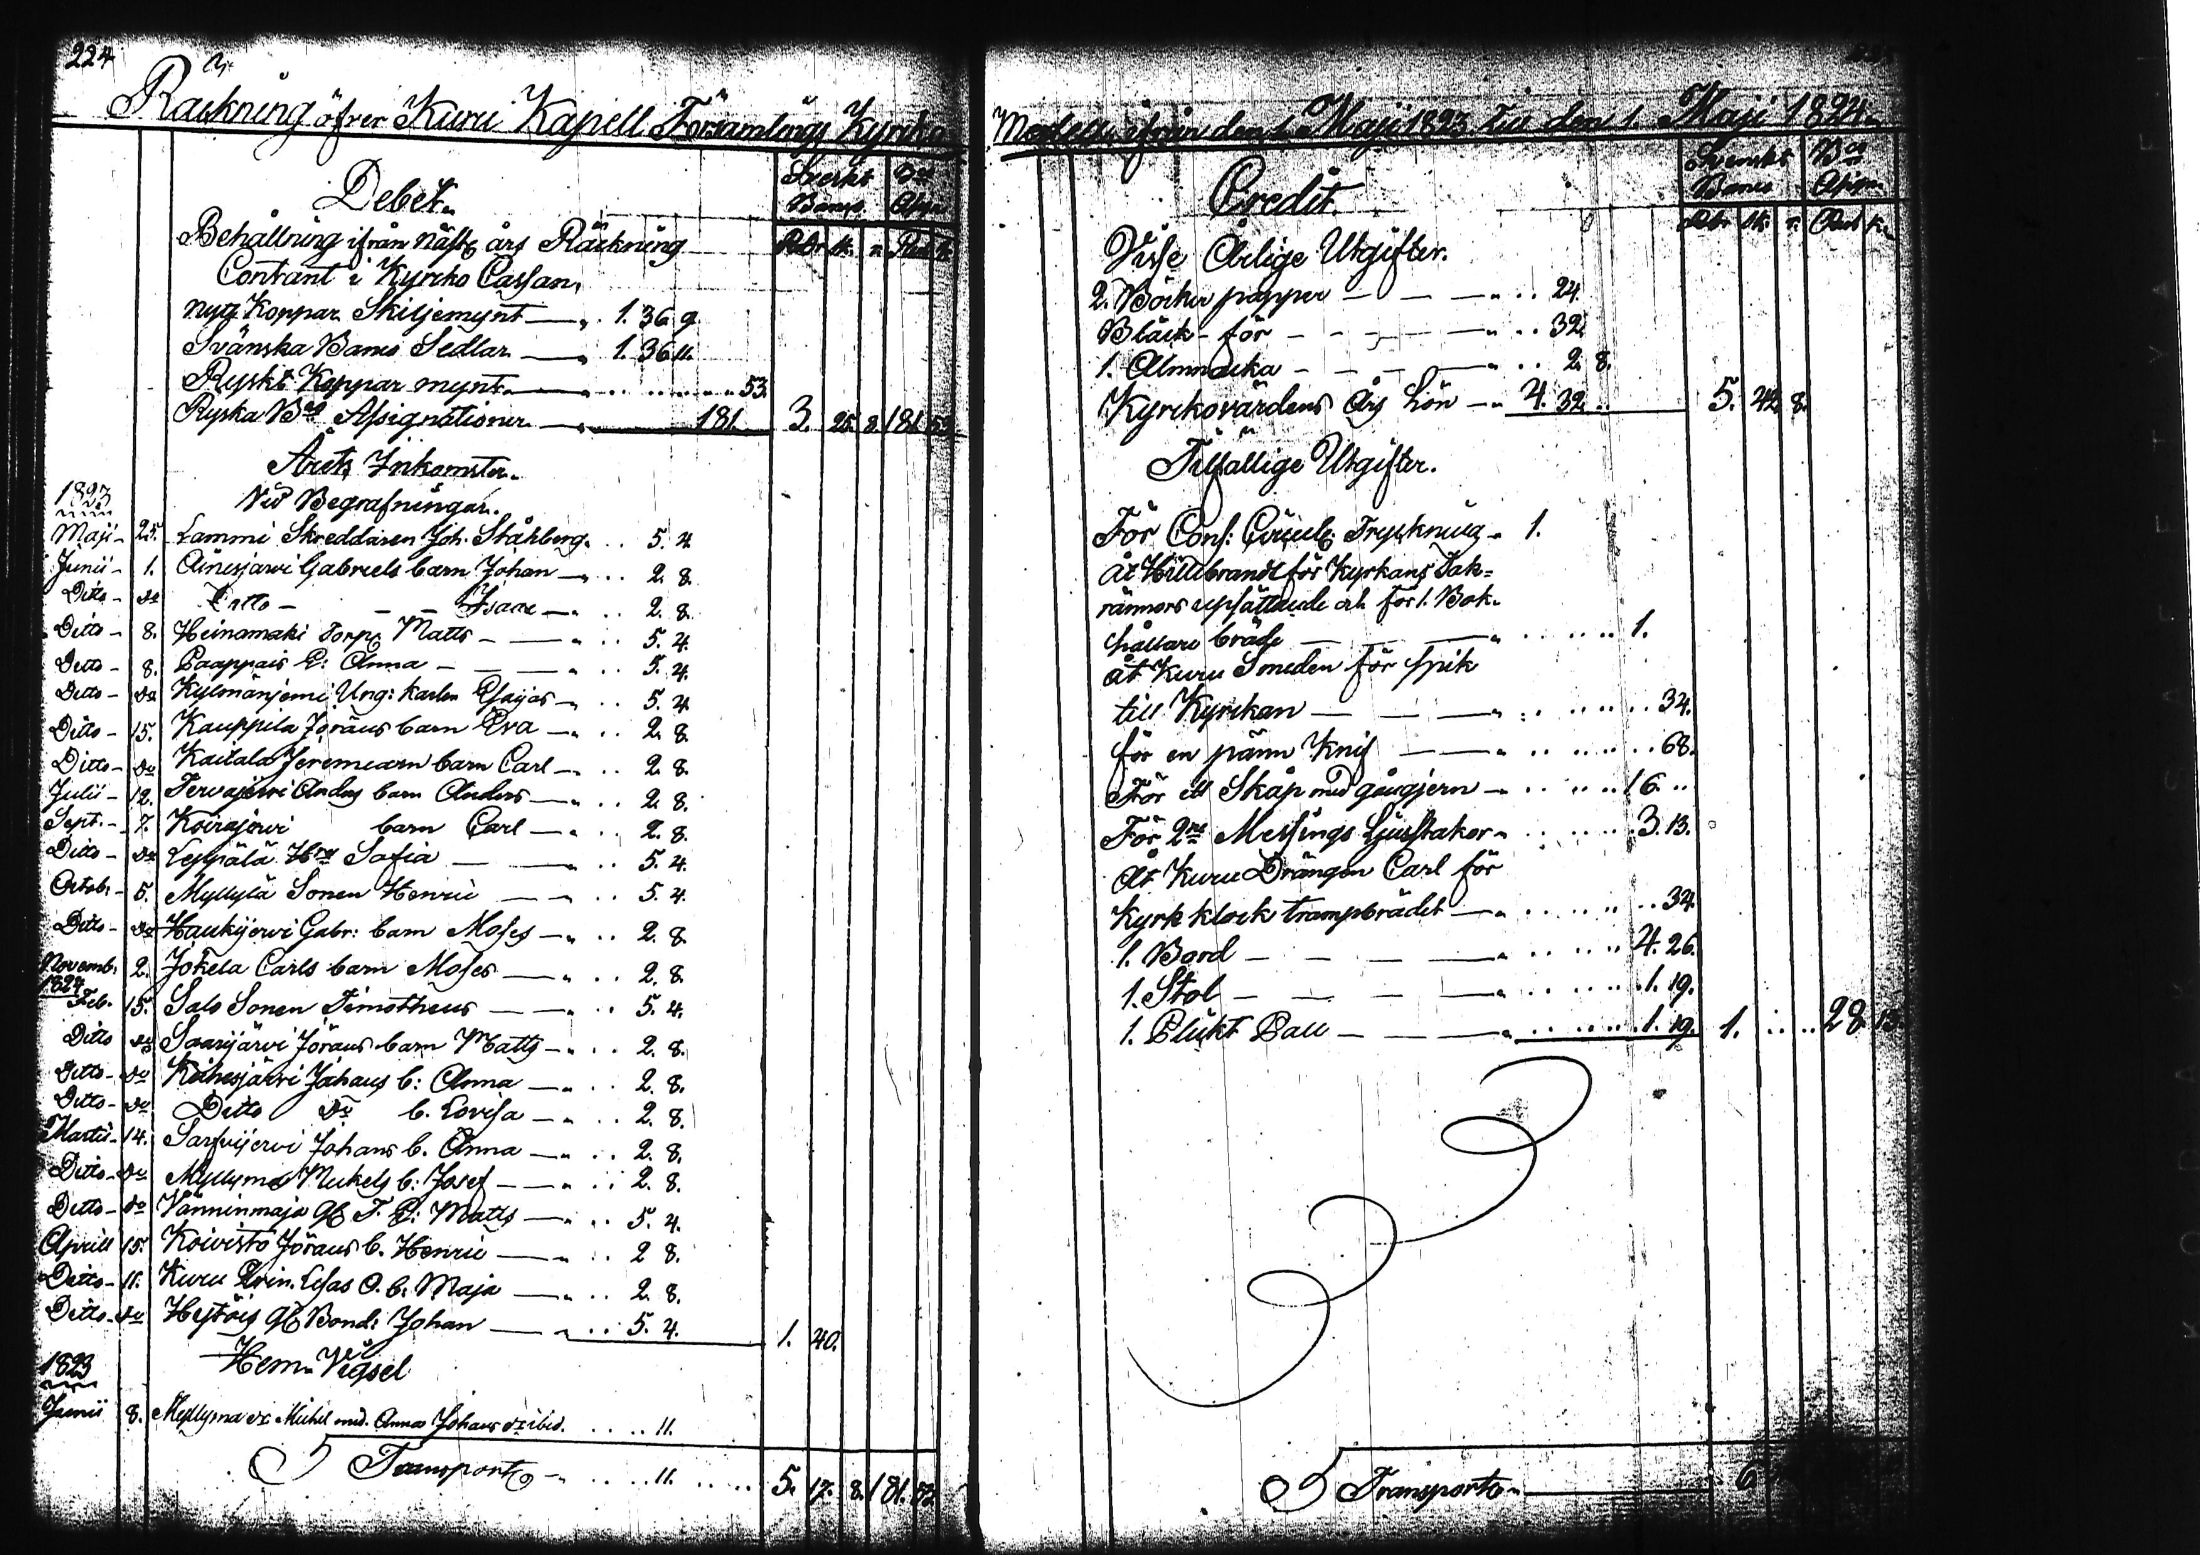 224
Räckning öfver Kuru Kapell Församlings Kyrko
Debet. Svenskt Bco
Banco Assign
Behållning ifrån näst års Räckning Rdr sk. r. Rub. k.
Contant i Kyrko Cassan,
nytt Koppar Skiljemynt — 1. 36. 9.
Svänska Banco Sedlar — 1. 36. 11.
Ryskt Koppar mynt — 53.
Ryska Bco Assignationer — 181. 3. 25. 8. 181. 53
Årets Inkomster.
1823
Vid Begrafningar.
Maji 25. Lammi Skreddaren Joh. Ståhlberg. 5. 4.
Junii 1. Ainesjärvi Gabriels barn Johan — 2. 8.
Ditto do Ditto — Isaac — 2. 8.
Ditto 8. Heinamäki Torp Matts — 5. 4.
Ditto 8. Paappais E: Anna — 5. 4.
Ditto do Kylmänjemi Ung: karlen Esaijas — 5. 4.
Ditto 15. Kauppila Jörans barn Eva — 2. 8.
Ditto do Kaitala Jeremiæ barn Carl — 2. 8.
Julii 12. Tervajärvi Anders barn Anders — 2. 8.
Sept. 7. Koirajärvi barn Carl — 2. 8.
Ditto do Leppälä Sofia — 5. 4.
Octob. 5. Myllylä Sonen Henric — 5. 4.
Ditto do Haukijervi Gabr: barn Moses — 2. 8.
Novemb. 2. Jokela Carls barn Moses — 2. 8.
1824
Feb. 15. Salo Sonen Timotheus — 5. 4.
Ditto do Saarijärvi Jörans barn Matts — 2. 8.
Ditto do Keihesjärvi Johans b: Anna — 2. 8.
Ditto do Ditto do b. Lovisa — 2. 8.
Martii 14. Sarfvijervi Johans b. Anna — 2. 8.
Ditto do Myllymä Mickels b: Josef — 2. 8.
Ditto do Vänninmaja Matts — 5. 4.
Aprill 15. Koivisto Jörans b. Henric — 2. 8.
Ditto 11. Kuru b. Maja — 2. 8.
Ditto do Bond: Johan — 5. 4. 1. 40.
Hem Vigsel
1823
Junii 8. Myllymä dr. Michel med. Anna Johans dr ibid. 11.
Transport — 11. 5. 17. 8. 181. 53.
Medell ifrån den 1. Maji 1823 till den 1. Maji 1824.
Credit. Svenskt Bco
Banco Assign
Rdr sk. r. Rub. k.
Visse Årlige Utgifter.
2. Böcker papper — 24.
Bläck för — 32.
1. Almnacka — 2. 8.
Kyrkovärdens Års Lön — 4. 32. 5. 42. 8.
Tilfällige Utgifter.
För Cons: Circul: Tryckning 1.
åt Hillebrandt för Kyrkans Tak=
rännors upsättande och för 1. Bok-
hållare bräde — 1.
åt Kuru Smeden för spik
till Kyrckan — 34.
för en pänn Knif — 68.
För ett Skåp med gångjern — 16.
För 2ne Messings Ljusstakar — 3. 13.
Åt Kuru Drängen Carl för
Kyrk klock trampbrädet — 34.
1. Bord — 4. 26.
1. Stol — 1. 19.
1. Pall — 1. 19. 1. 28. 13.
Transport — 6